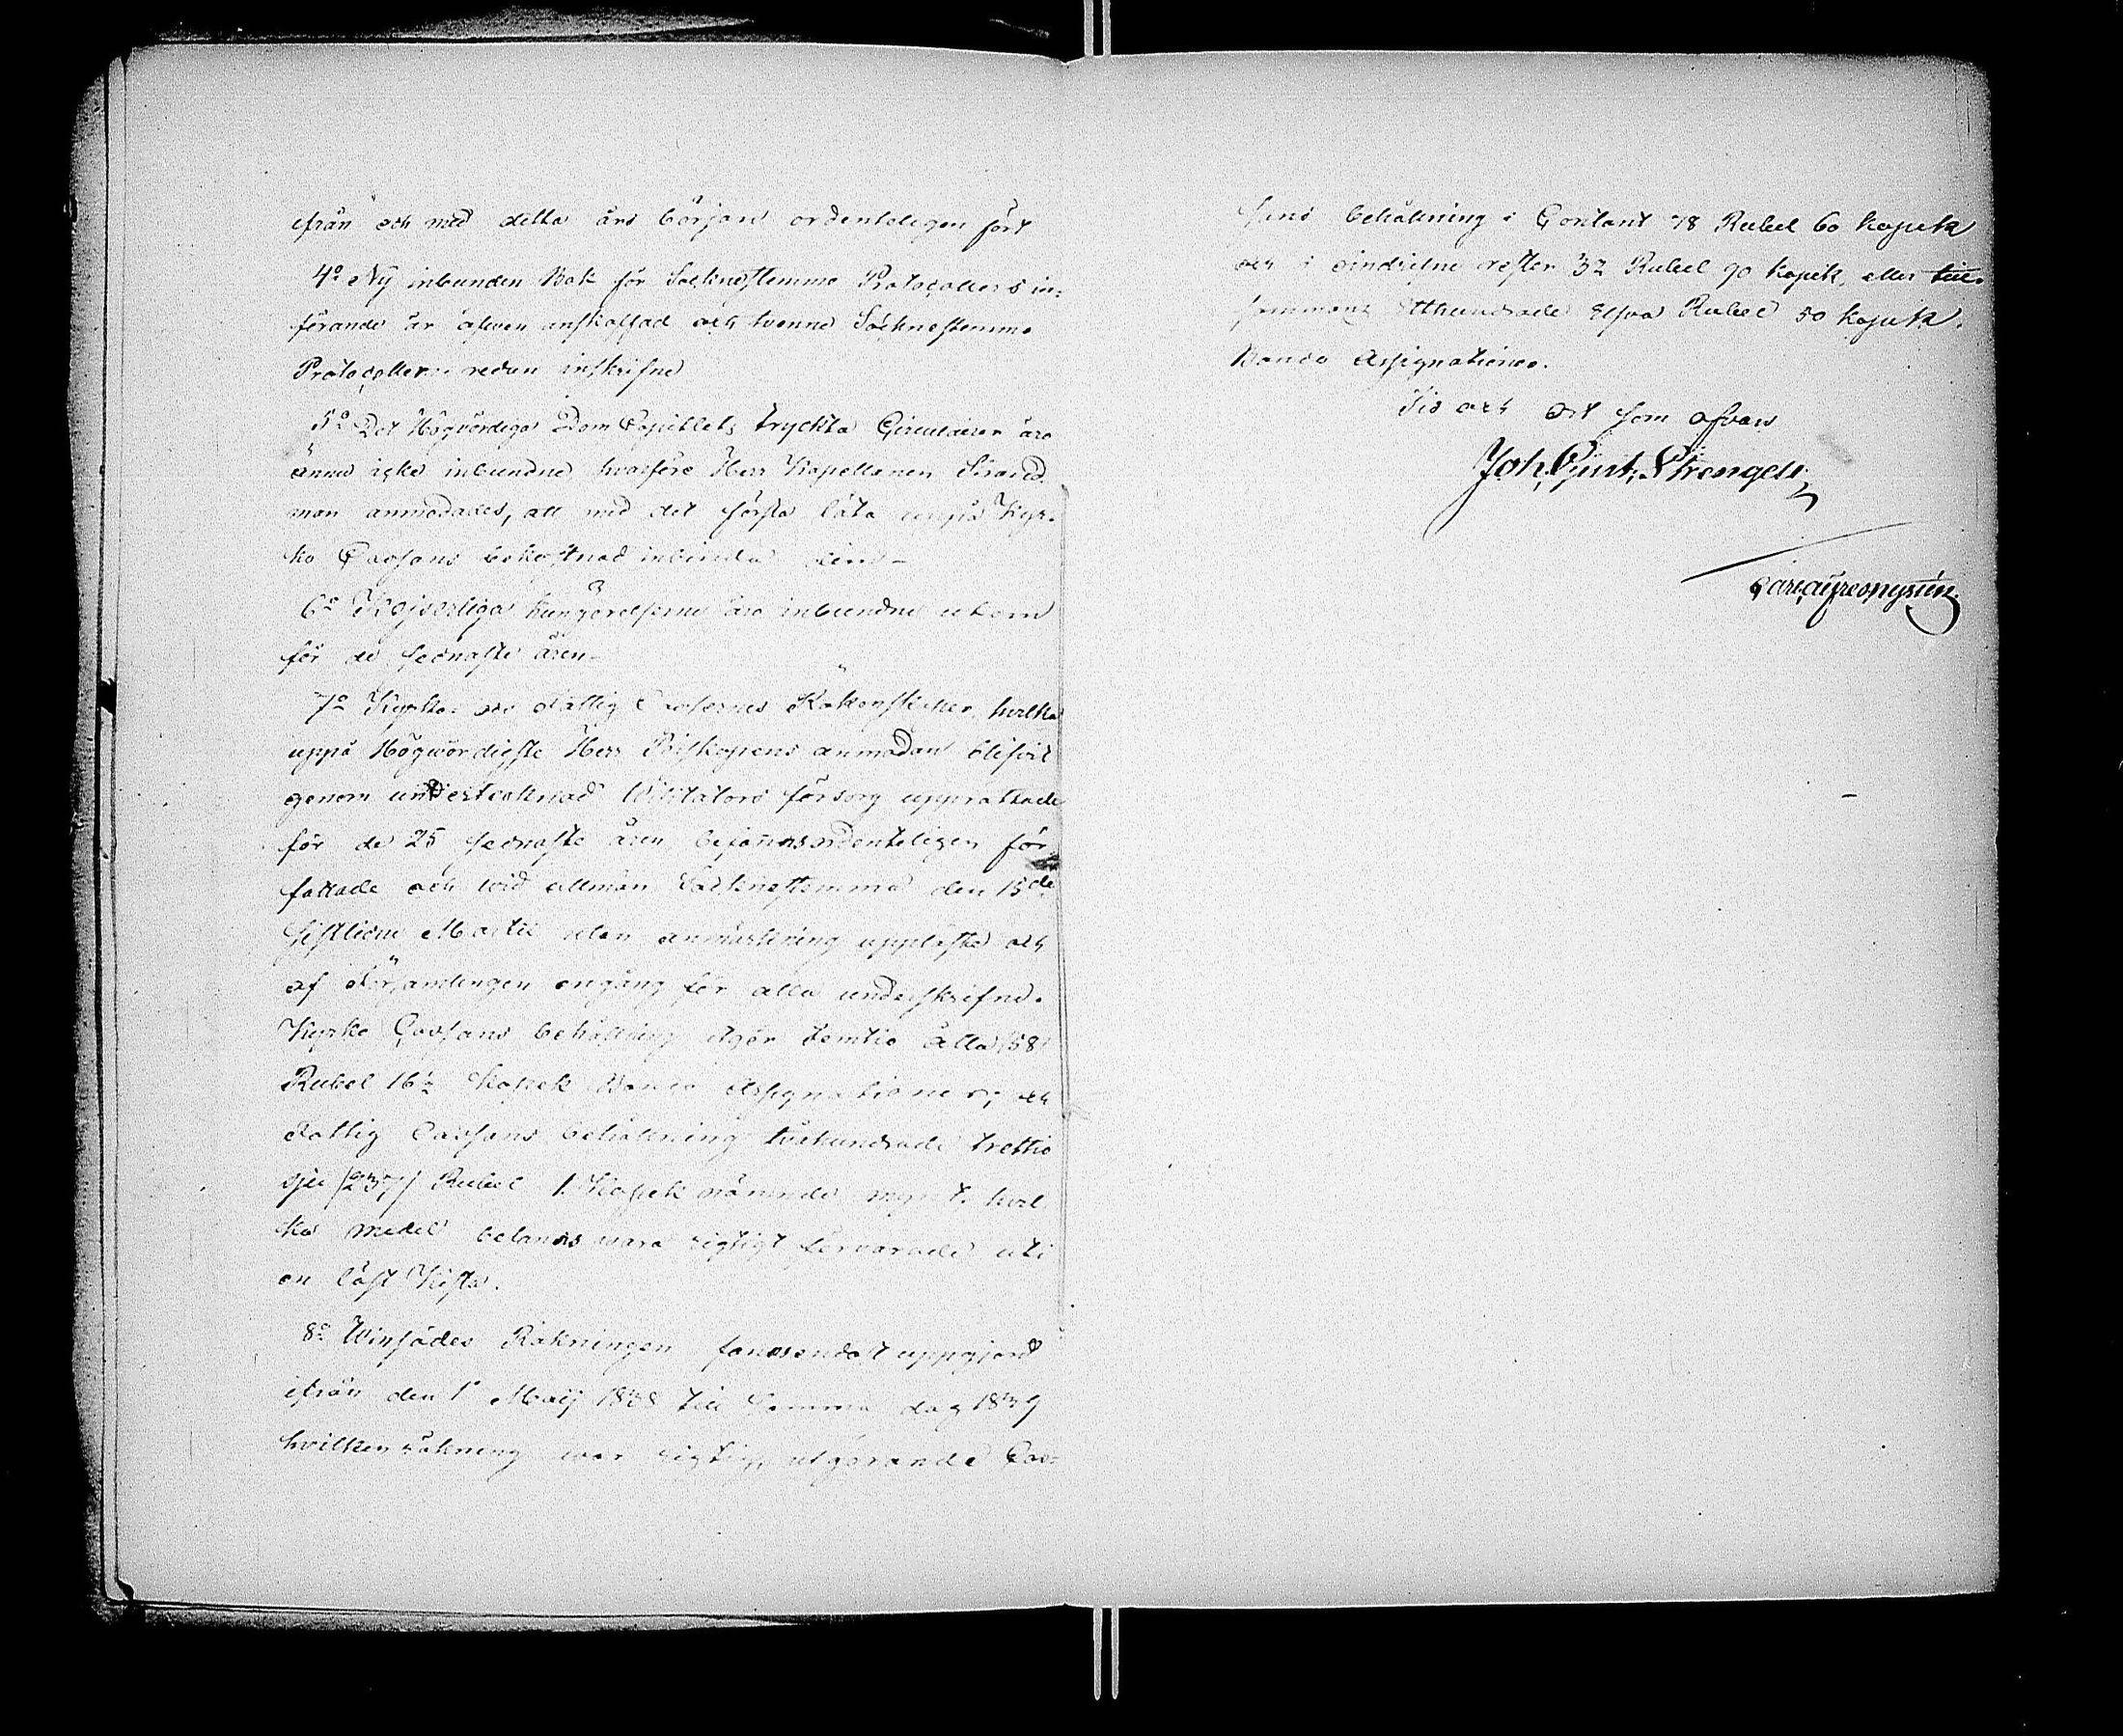 ifrån och med detta års början ordenteligen fört
4o Ny inbunden Bok för Socknestemme Protocollers in-
förande är äfven anskaffad och tvenne Socknestemme
Protocoller redan inskrifne
5o Det Högvördiga Dom Capitlets tryckta Circulairer äro
ännu icke inbundne hvarföre Herr Kapellanen
man anmodades, att med det första låta uppå Kyr-
ko Cassans bekostnad inbinda dem -
6o Kejserliga Kungörelserne äro inbundne utom
för de sednaste åren -
7o Kyrko och Fattig Cassornes Räkenskaper, hvilka
uppå Högwördigste Herr Biskopens anmodan blifvit
genom undertecknad Visitators försorg upprättade
för de 25 sednaste åren befanns ordenteligen för-
fattade och wid allmän Socknestemma den 15de
sistlidne Martii utan anmärkning uppläste och
af Församlingen engång för alla underskrifne.
Kyrko Cassans behållning utgör femtio åtta /58/
Rubel 16½ Kopek Banco Assignationer, och
Fattig Cassans behållning tvåhundrade trettio
sju /237/ Rubel 1. Kopek nämnde mynt. hvil-
ka medel befanns wara rigtigt förvarade uti
en låst Kista.
8o Winsädes Räkningen fanns endast uppgjord
ifrån den 1e Maij 1838 till samma dag 1839
hvilken räkning war rigtig, utgörande Cas-
sans behållning i Contant 78 Rubel 60 kopek
och i oindrifne rester 32 Rubel 90 kopek, eller till-
sammans Etthundrade Elfva Rubel 50 kopek.
Banco Assignationer.
Tid och Ort som ofvan
Joh. Gust. Strengell